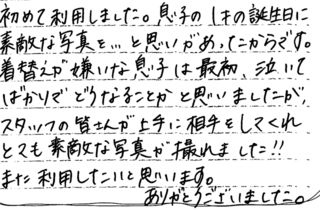 初めて利用しました。息子の1才の誕生日に
素敵な写真を…と思いがあったからです。
着替えが嫌いな息子は最初、泣いて
ばかりでどうなることかと思いましたが、
スタッフの皆さんが上手に相手をしてくれ
とても素敵な写真が撮れました!!
また利用したいと思います。
ありがとうございました。